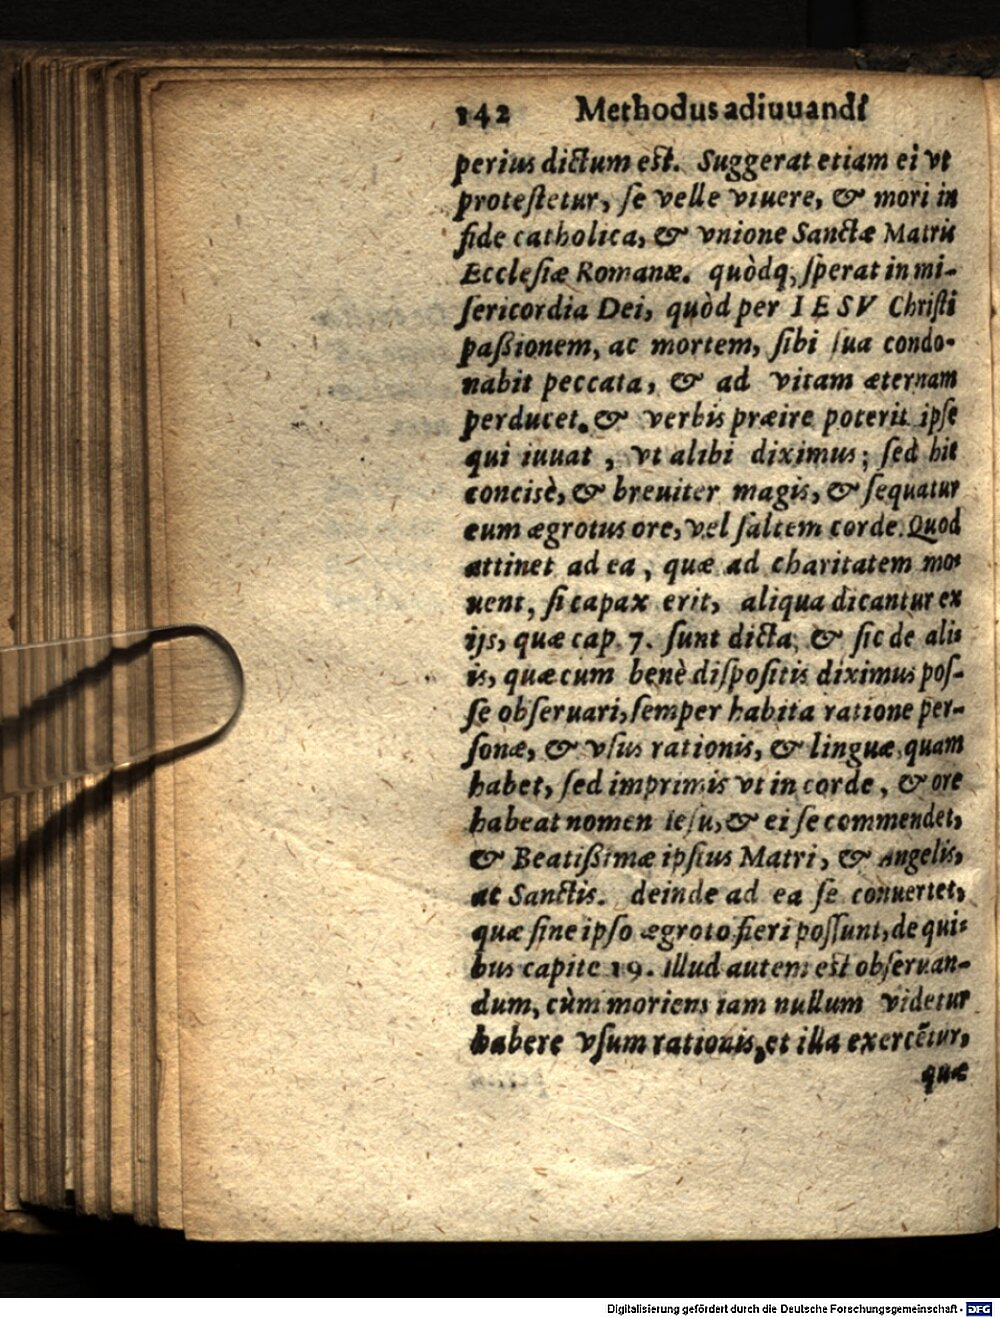 142 Methodus adiuuandi
perius dictum est. Suggerat etiam ei vt
protestetur, se velle viuere, & mori in
fide catholica, & vnione Sanctæ Matris
Ecclesiæ Romanæ. quòdq; sperat in mi-
sericordia Dei, quòd per IESV Christi
paßionem, ac mortem, sibi sua condo-
nabit peccata, & ad vitam æternam
perducet. & verbis præire poterit ipse
qui iuuat, vt alibi diximus; sed hic
concisè, & breuiter magis, & sequatur
eum ægrotus ore, vel saltem corde. Quod
attinet ad ea, quæ ad charitatem mo-
uent, si capax erit, aliqua dicantur ex
ijs, quæ cap. 7. sunt dicta, & sic de alij
is, quæ cum benè dispositis diximus pos-
se obseruari, semper habita ratione per-
sonæ, & vsus rationis, & linguæ, quam
habet, sed imprimis vt in corde, & ore
habeat nomen Iesu, & ei se commendet,
& Beatißimæ ipsius Matri, & Angelis,
ac Sanctis. deinde ad ea se conuertet,
quæ sine ipso ægroto fieri possunt, de qui-
bus capite 19. Illud autem est obseruan-
dum, cùm moriens iam nullum videtur
habere vsum rationis, et illa exercẽtur,
quæ
Digitalisierung gefördert durch die Deutsche Forschungsgemeinschaft - DFG